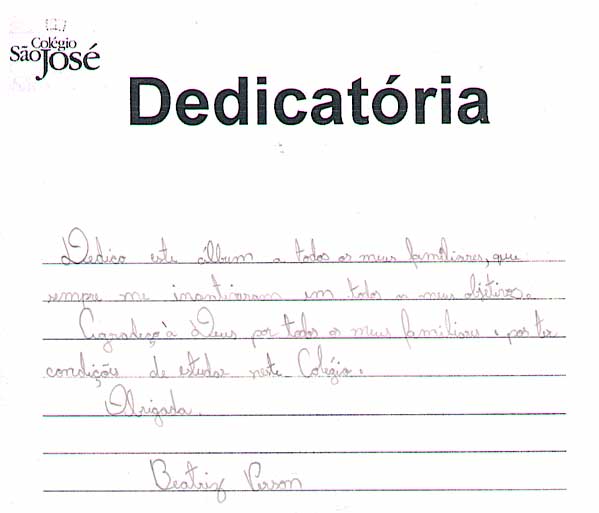 Colégio
São José
Dedicatória
Dedico este álbum a todos os meus familiares, que
sempre me inantivaram em todos os meus objetivos.
Agradeço à Deus por todos os meus familiares e por ter
condições de estudar neste Colégio.
Obrigada.
Beatriz Person